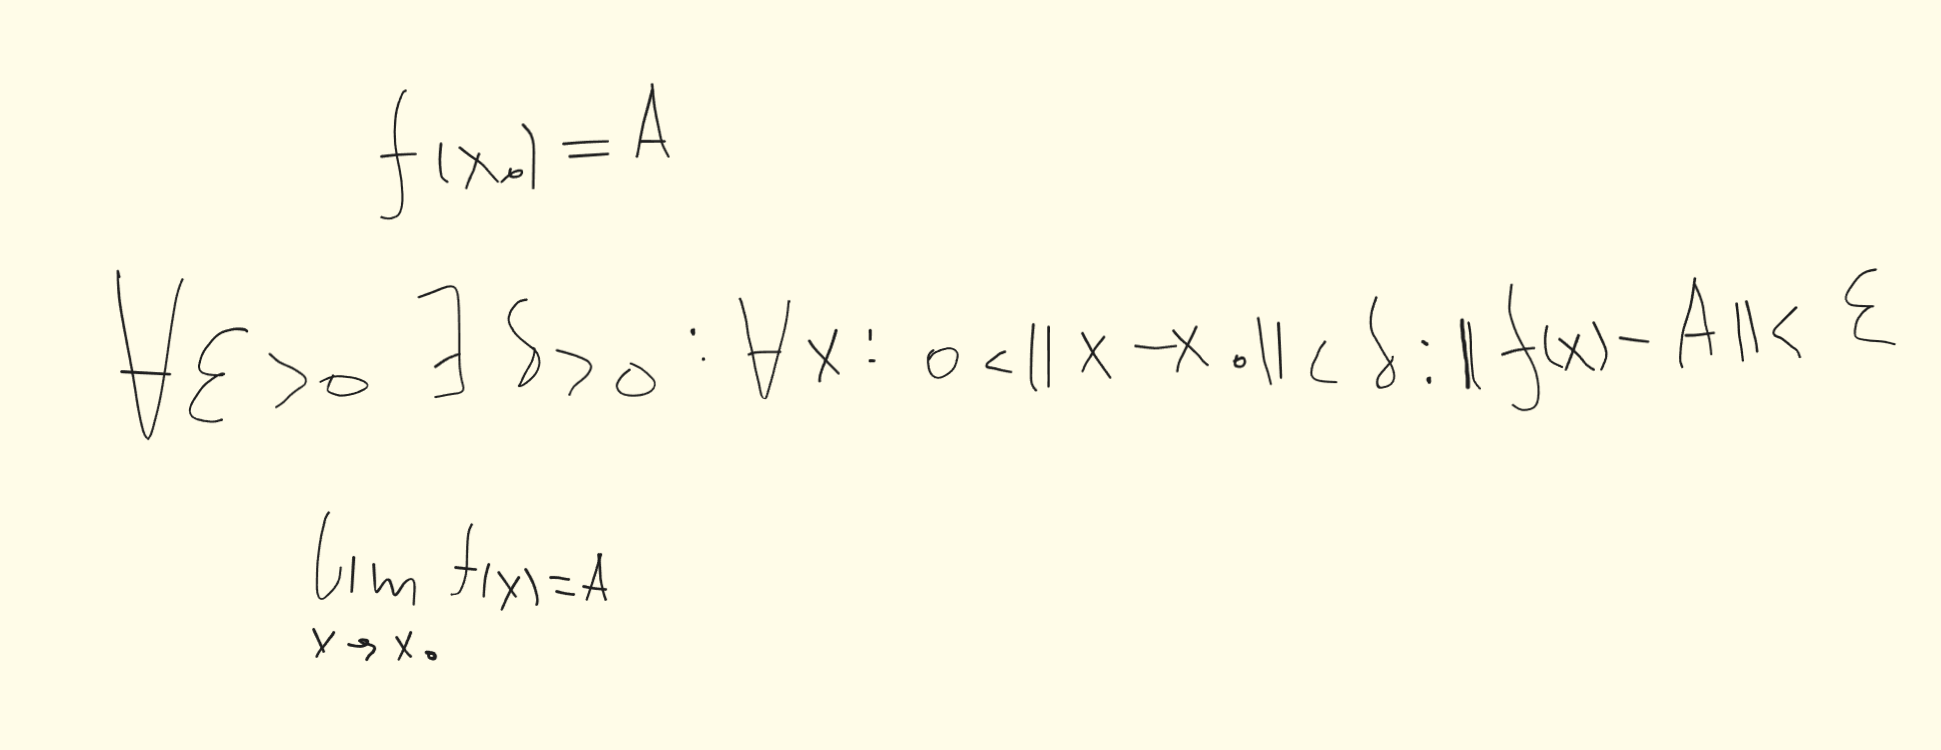 f(x₀) = A
∀ε>0 ∃δ>0 : ∀x : 0<||x-x₀||<δ : ||f(x)-A||< ε
lim f(x)=A
x→x₀